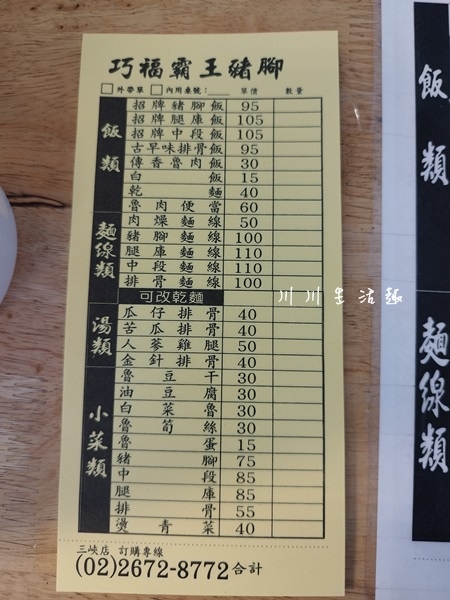 巧福霸王豬腳
外帶單 內用桌號：____ 單價 數量
飯類
招牌豬腳飯 95
招牌腿庫飯 105
招牌中段飯 105
古早味排骨飯 95
傳香魯肉飯 30
白飯 15
乾麵 40
魯肉便當 60
麵線類
肉燥麵線 50
豬腳麵線 100
腿庫麵線 110
中段麵線 110
排骨麵線 100
可改乾麵
湯類
瓜仔排骨 40
苦瓜排骨 40
人蔘雞腿 50
金針排骨 40
小菜類
魯豆干 30
油豆腐 30
白菜魯 30
魯筍絲 30
魯蛋 15
豬腳 75
中段 85
腿庫 85
排骨 55
燙青菜 40
三峽店 訂購專線
(02)2672-8772 合計
飯類
麵線類
川川生活趣